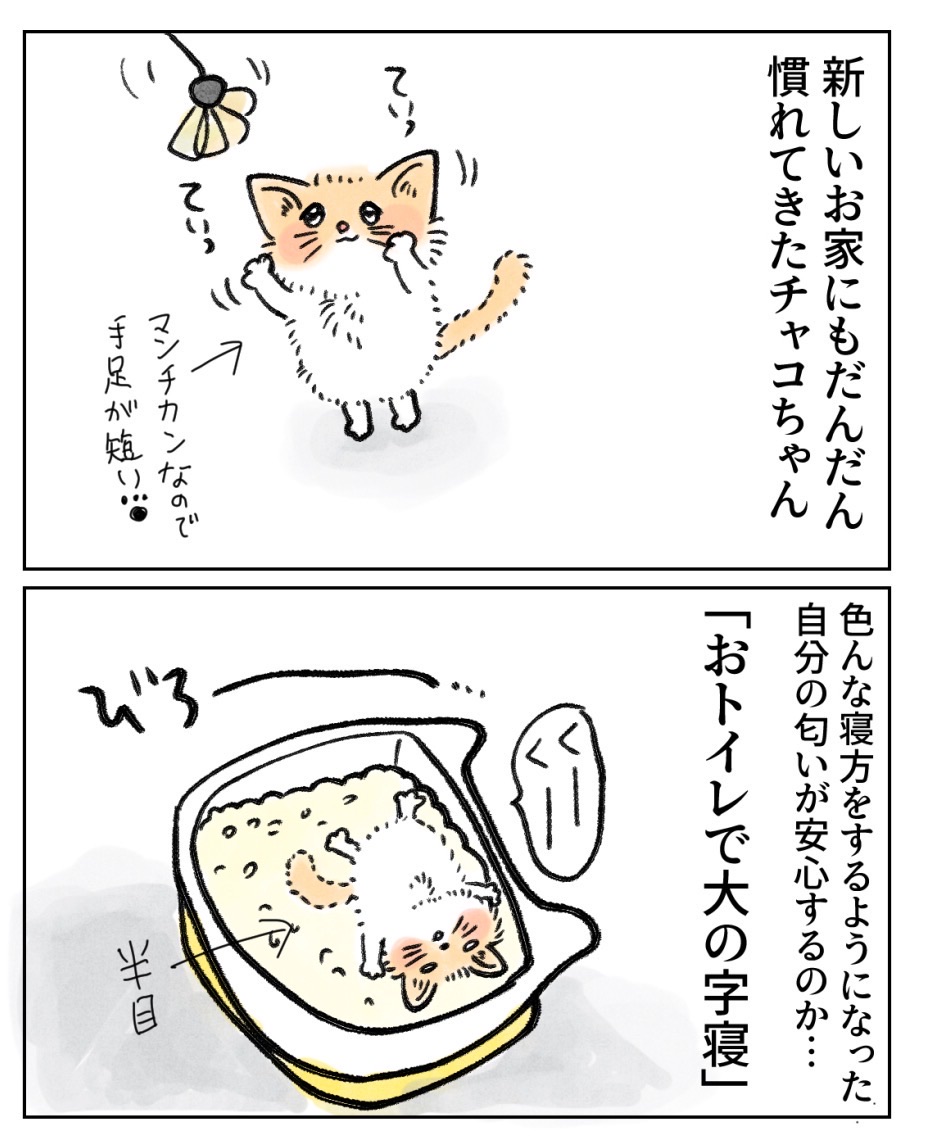 新しいお家にもだんだん
慣れてきたチャコちゃん
てぃっ
てぃっ
マンチカンなので
手足が短い
色んな寝方をするようになった
自分の匂いが安心するのか…
「おトイレで大の字寝」
くくーー
びろーー…
半目